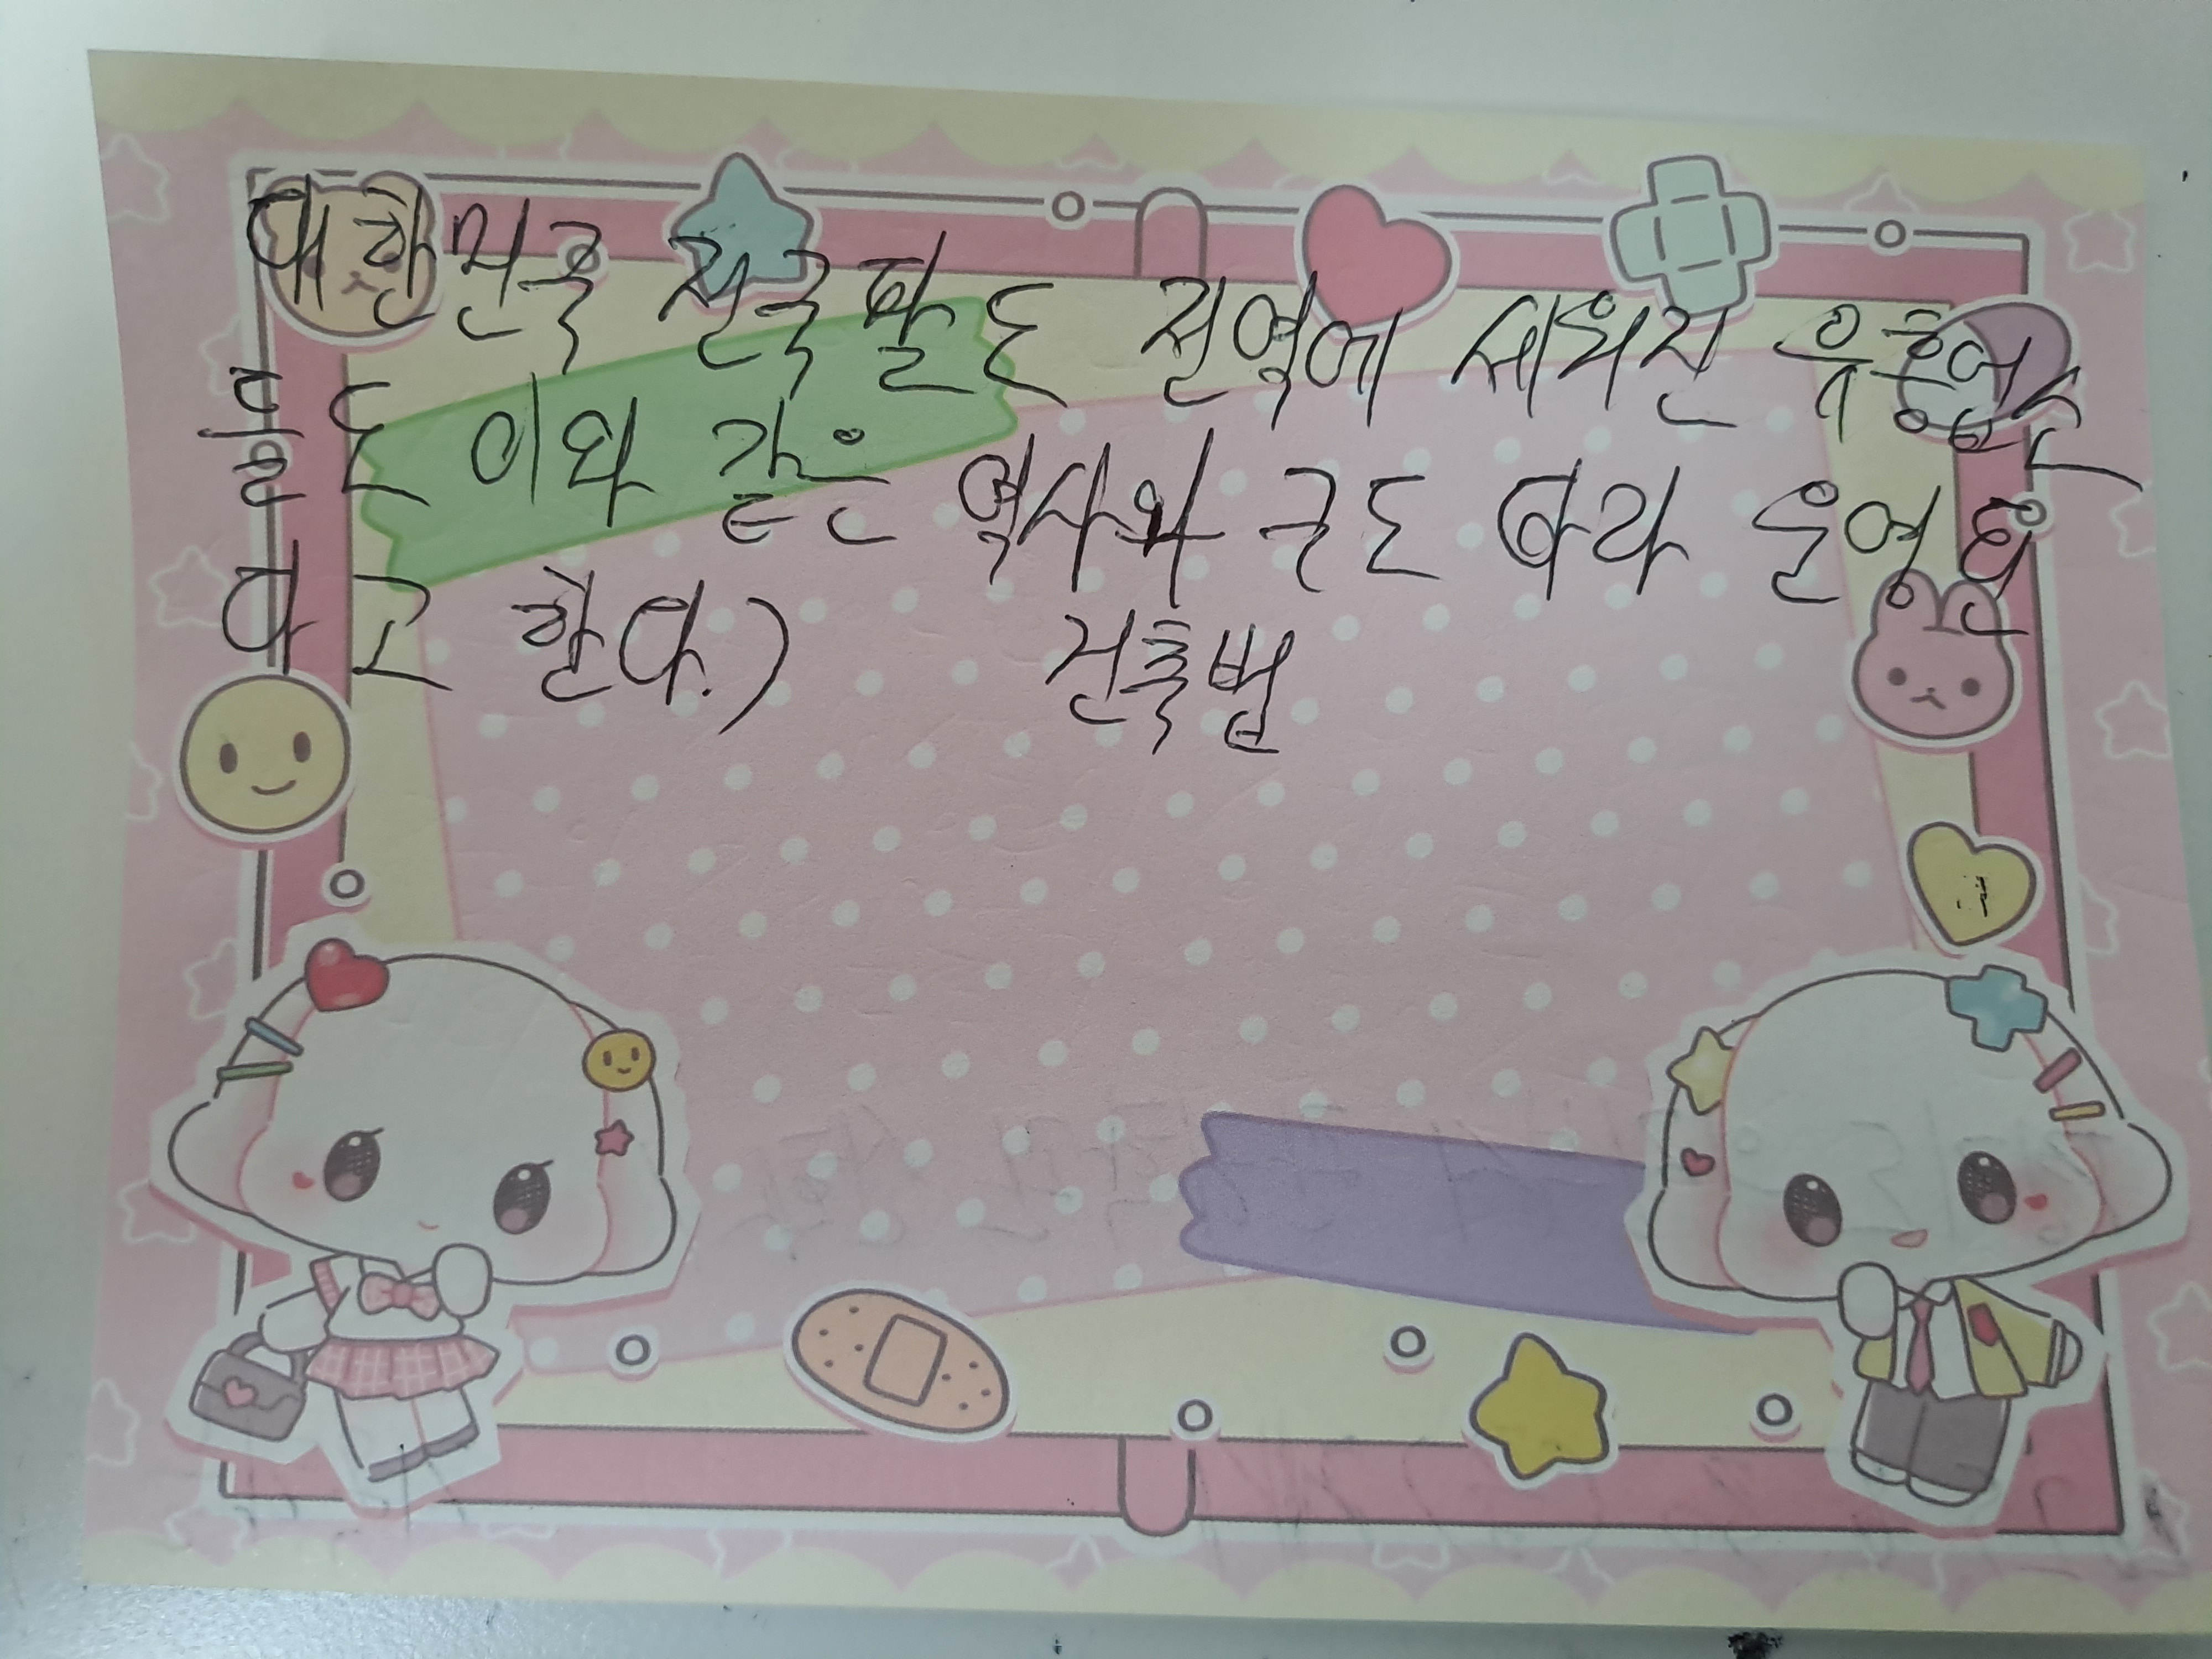 대한민국 전국팔도 전역에 세워진 유흥업소
들도 이와 같은 역사와 구도 따라 온어 왔
다고 한다.) 건축법